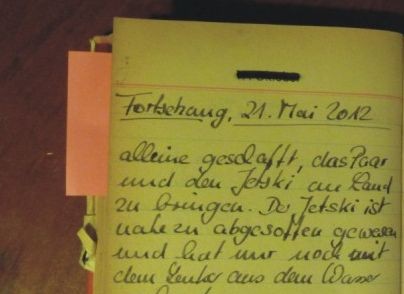 Fortsetzung, 21. Mai 2012
alleine geschafft, das Paar
und den Jetski an Land
zu bringen. Der Jetski ist
nahezu abgesoffen gewesen
und hat nur noch mit
dem Lenker aus dem Wasser